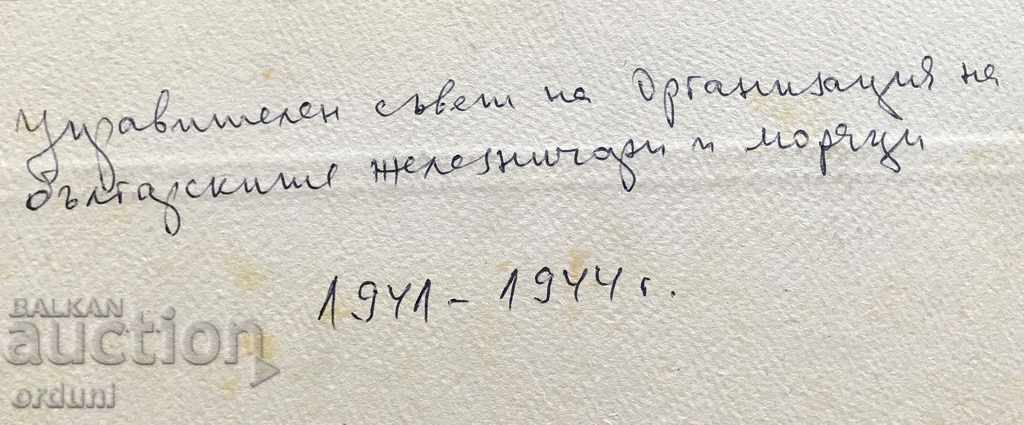 Управителен съвет на Организация на
българските железничари и моряци
1941 - 1944 г.
BALKAN
auction
orduni